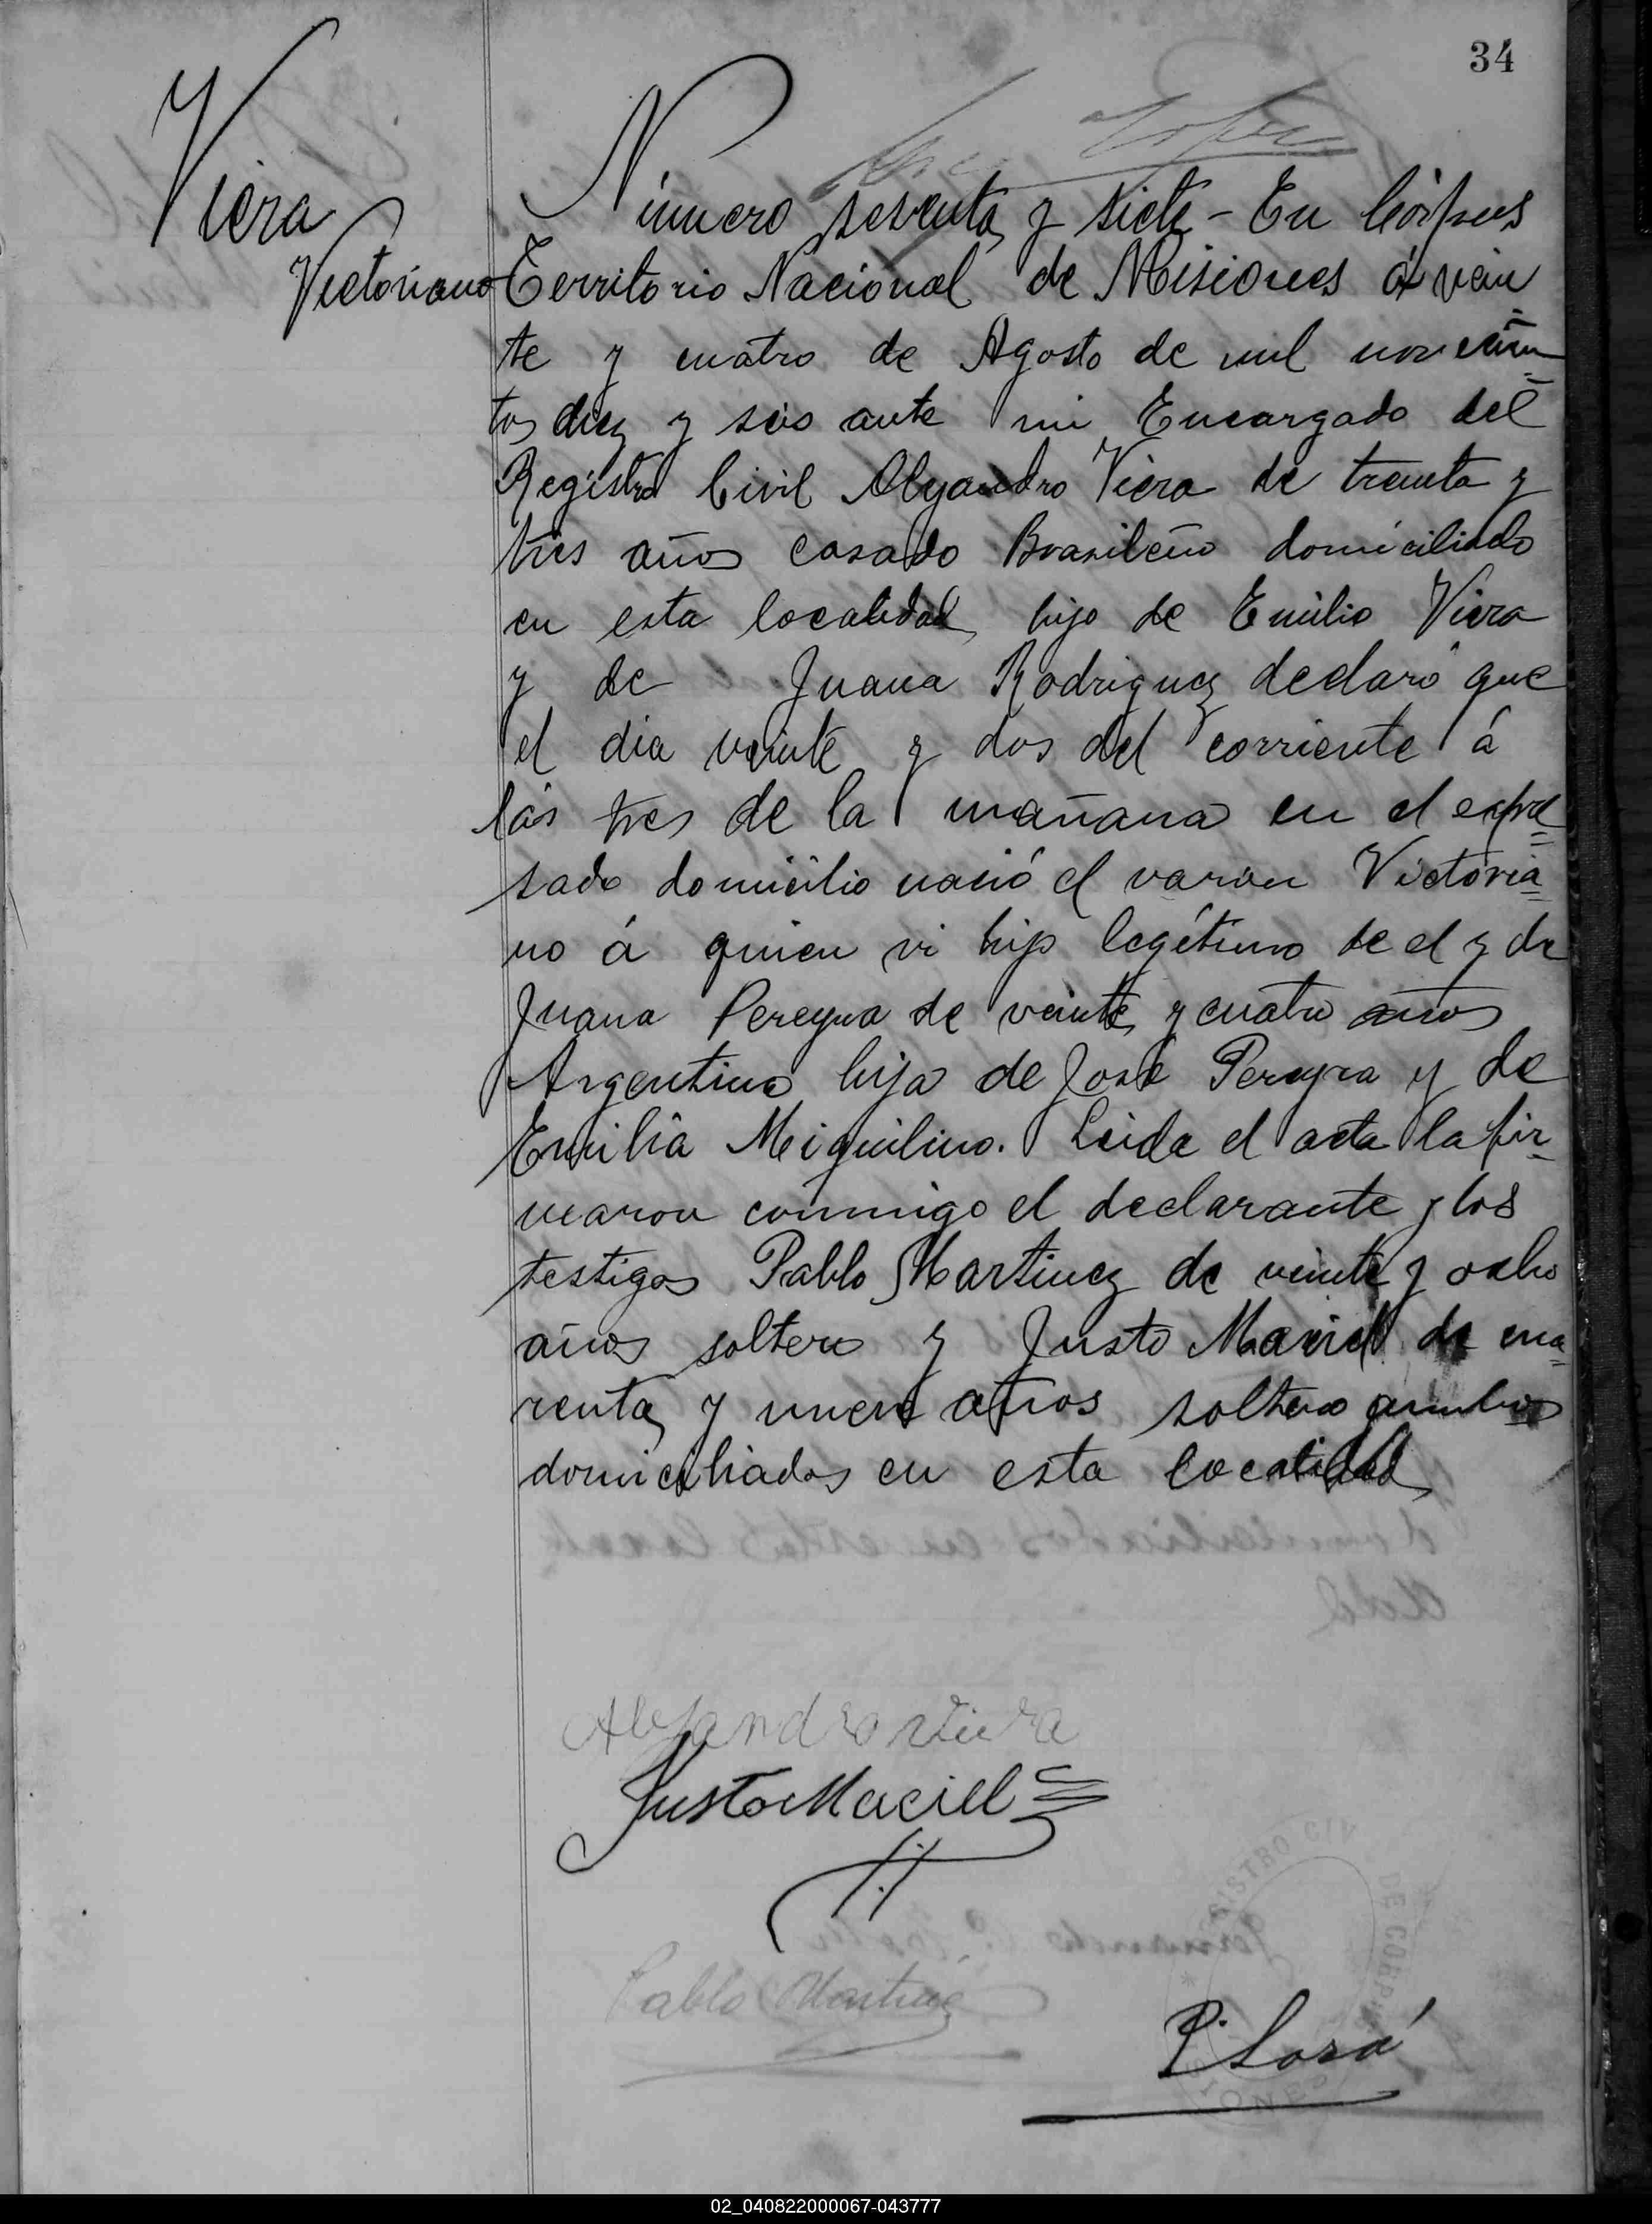 34
Viera
Victoriano
Número sesenta y siete - En Córpus
Territorio Nacional de Misiones á vein
te y cuatro de Agosto de mil novecien=
tos diez y seis ante mi Encargado del
Registro Civil Alejandro Viera de treinta y
tres años casado Brasileño domiciliado
en esta localidad hijo de Emilio Viera
y de Juana Rodriguez declaró que
el dia veinte y dos del corriente á
las tres de la mañana en el expre=
sado domicilio nació el varon Victoria=
no á quien vi hijo legítimo de el y de
Juana Pereyra de veinte y cuatro años
Argentina hija de José Pereyra y de
Emilia Meiquilino. Leida el acta la fir=
maron conmigo el declarante y los
testigos Pablo Martinez de veinte y ocho
años soltero y Justo Maciel de cua=
renta y nueve años soltero ambos
domiciliados en esta localidad
Alejandro viera
Justo Maciel
Pablo Martinez
P. Sosá
REGISTRO CIVIL DE CORPUS
MISIONES
02_040822000067-043777